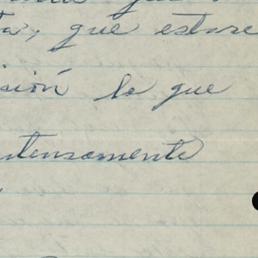 ta, que estare
sión lo que
ntensamente